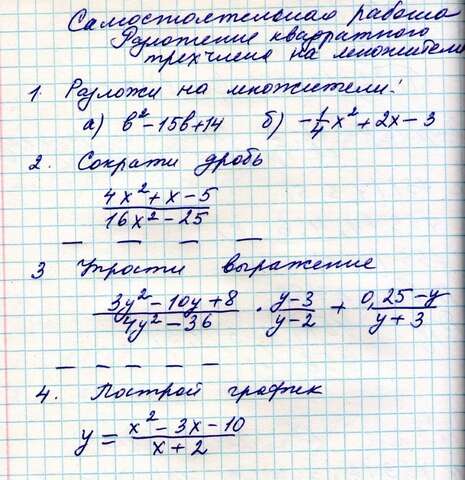 Самостоятельная работа
Разложение квадратного
трехчлена на множители
1. Разложи на множители:
а) b² - 15b + 14 б) -1/4 x² + 2x - 3
2. Сократи дробь
(4x² + x - 5)/(16x² - 25)
3 Упрости выражение
(3y² - 10y + 8)/(4y² - 36) · (y - 3)/(y - 2) + (0,25 - y)/(y + 3)
4. Построй график
y = (x² - 3x - 10)/(x + 2)